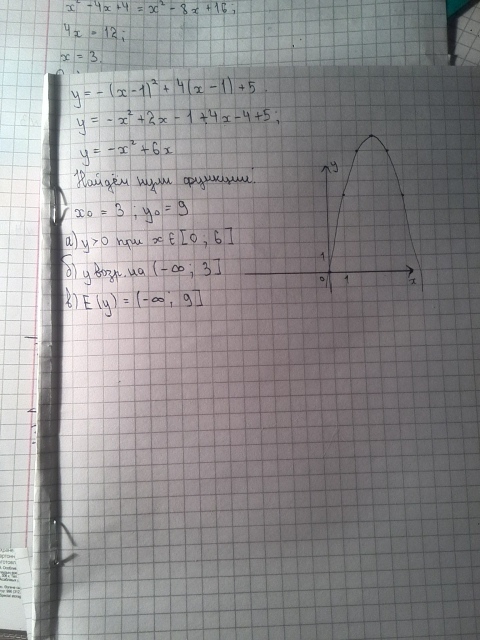 x² - 4x + 4 = x² - 8x + 16;
4x = 12;
x = 3.
y = -(x-1)² + 4(x-1) + 5.
y = -x² + 2x - 1 + 4x - 4 + 5;
y = -x² + 6x
Найдём нули функции:
x₀ = 3; y₀ = 9
а) y > 0 при x ∈ [0; 6]
б) y возр. на (-∞; 3]
в) E(y) = (-∞; 9]
y
1
0 1 x